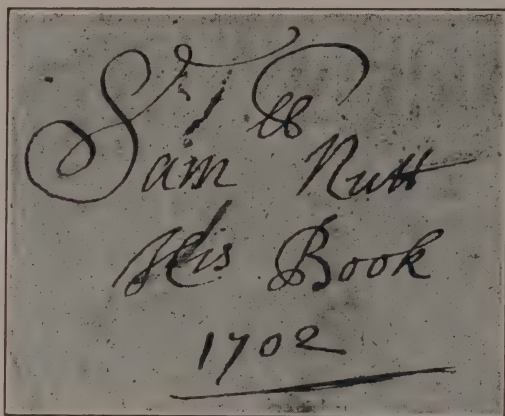 Sam Nutt
His Book
1702